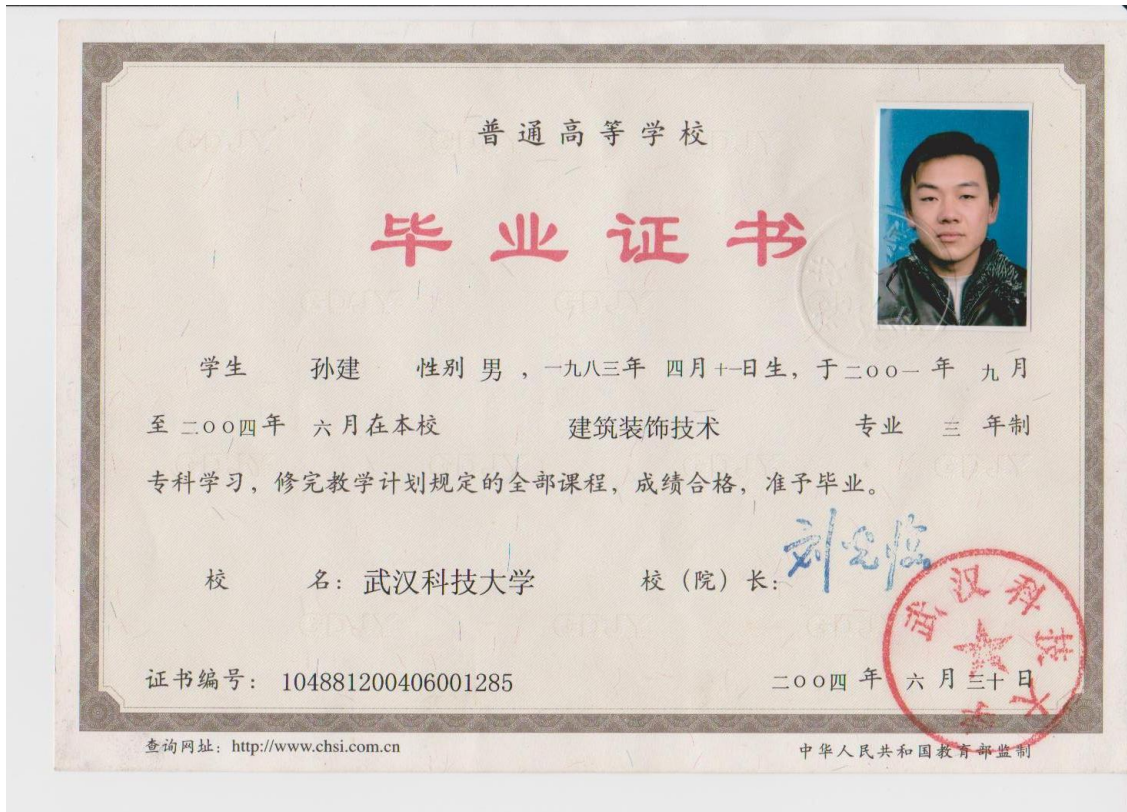 普通高等学校
毕业证书
学生 孙建 性别 男 ，一九八三年 四月十一日生，于二〇〇一 年 九月
至 二〇〇四年 六月在本校 建筑装饰技术 专业 三 年制
专科学习，修完教学计划规定的全部课程，成绩合格，准予毕业。
校 名：武汉科技大学 校（院）长：刘光临
武汉科技大学
证书编号： 104881200406001285 二〇〇四 年 六 月 三十 日
查询网址：http://www.chsi.com.cn 中华人民共和国教育部监制